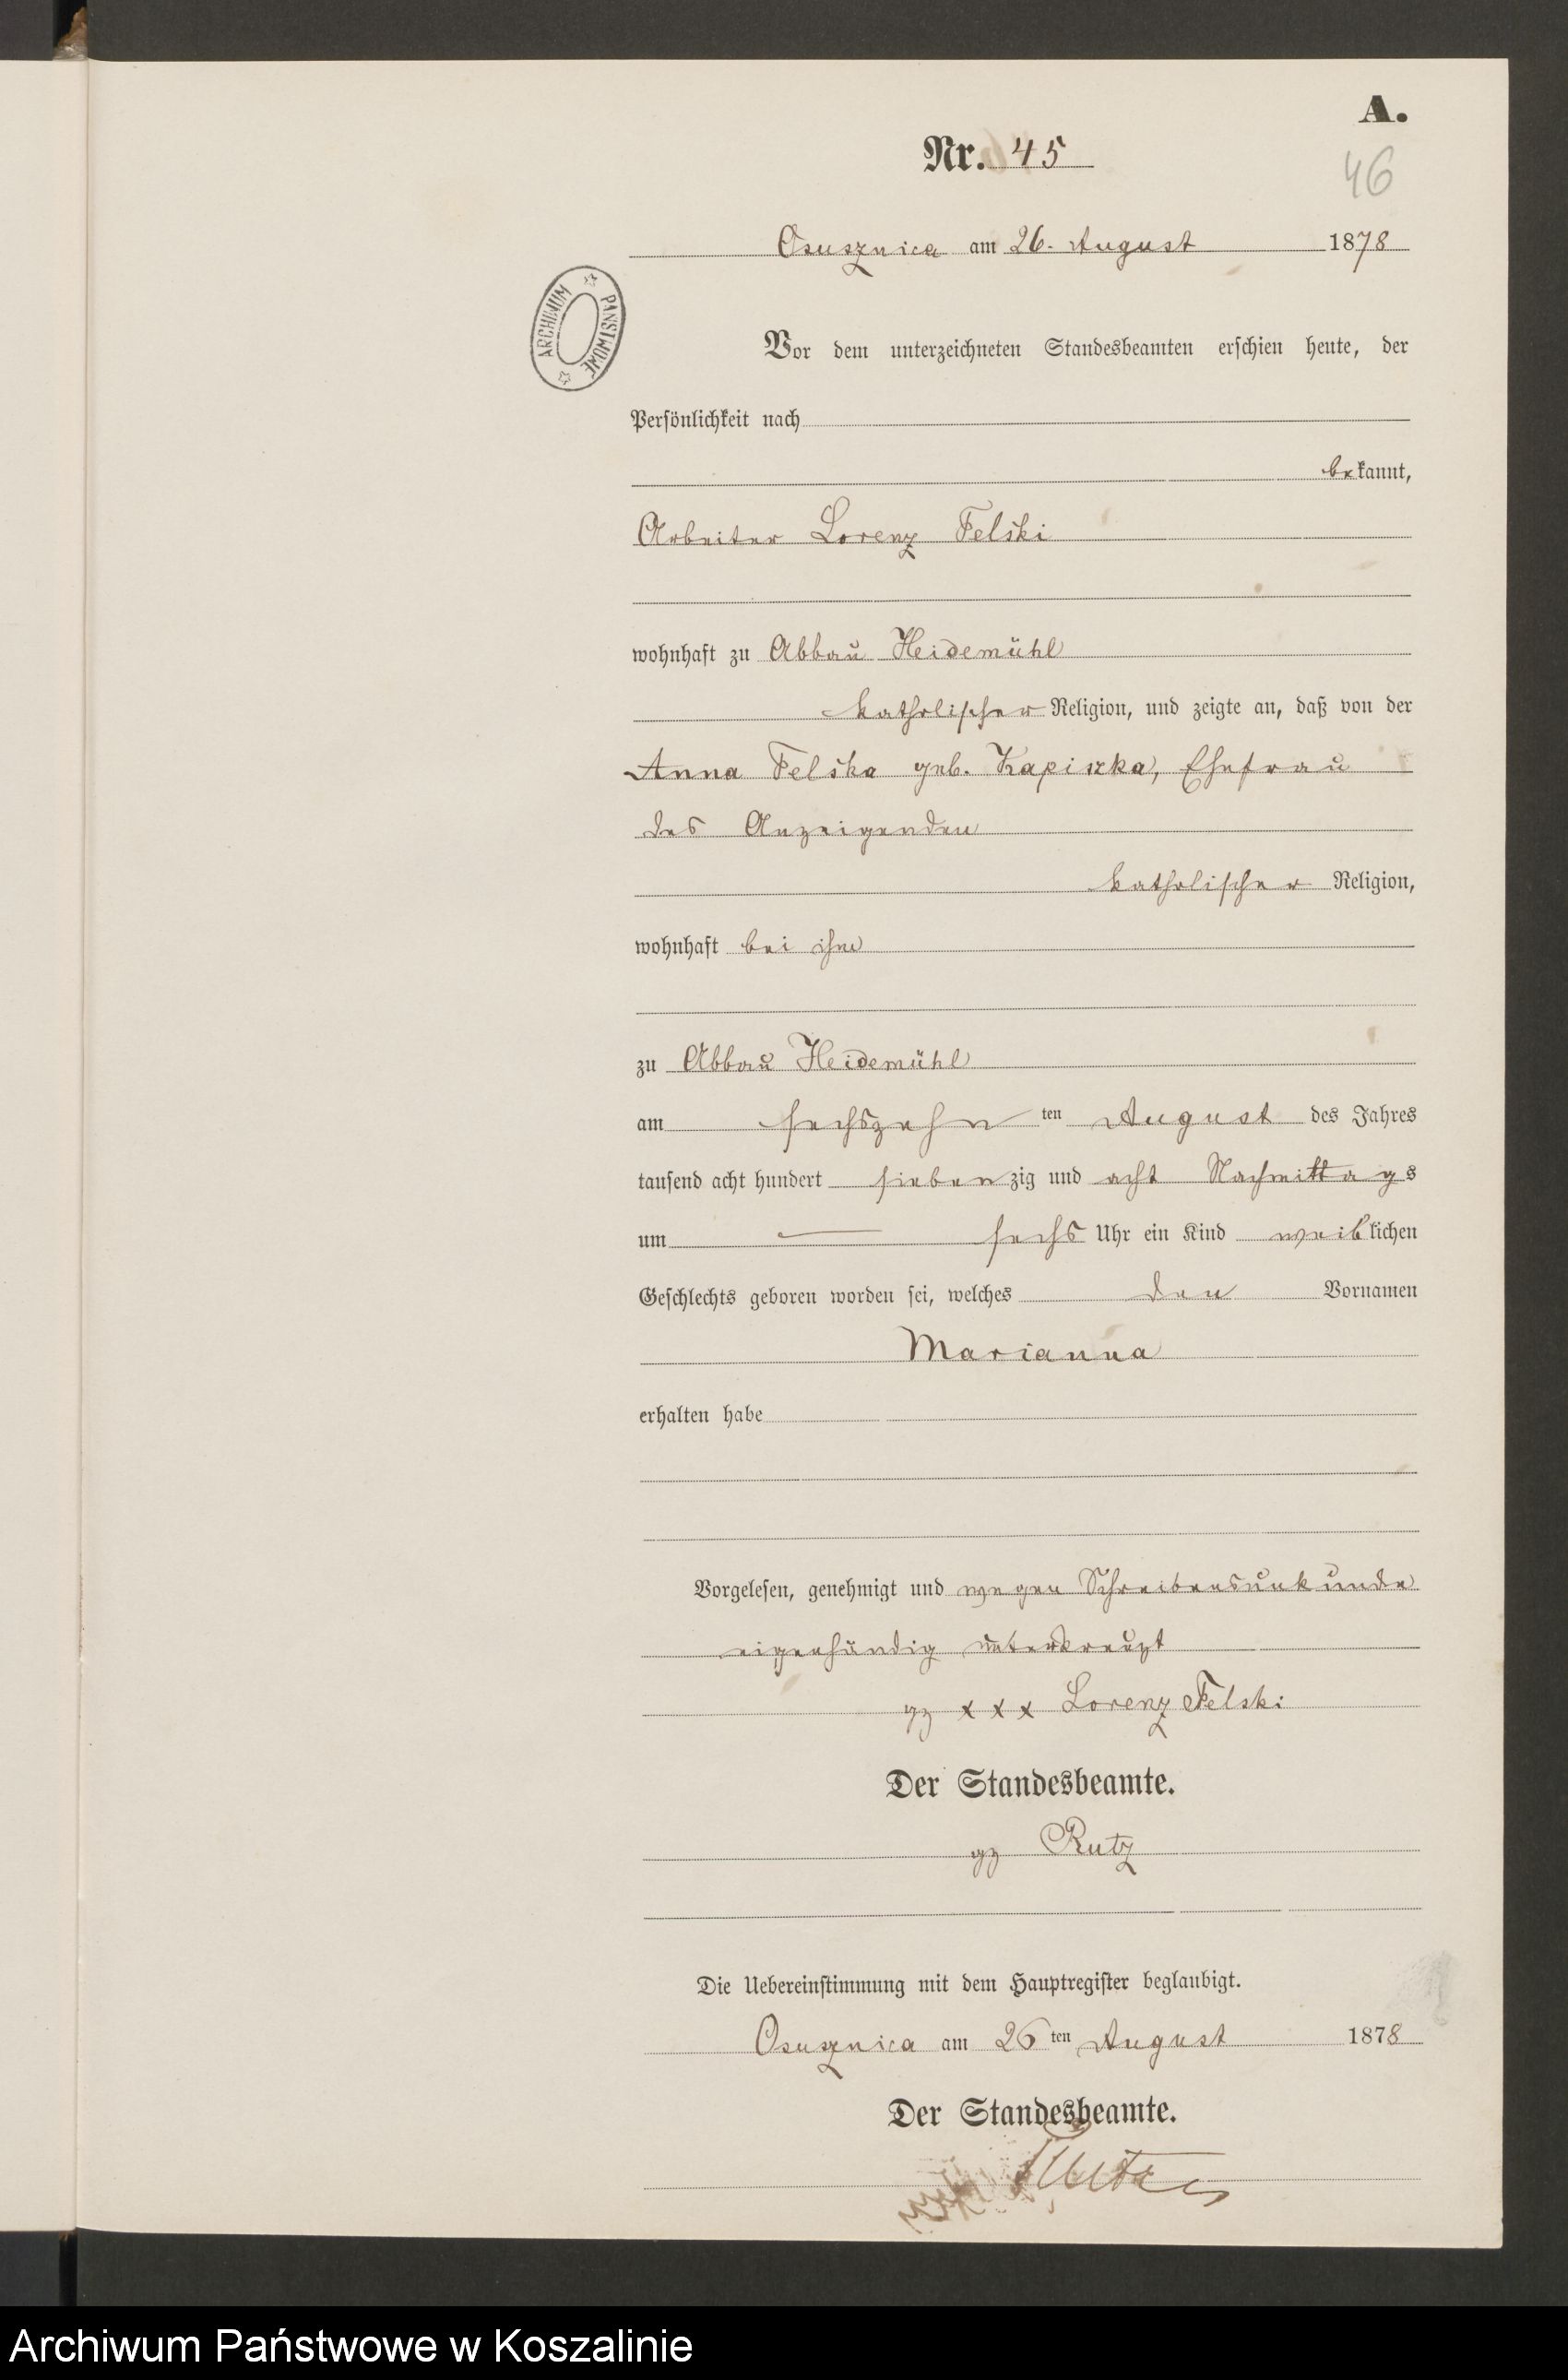 A.
Nr. 45
46
Osusznica am 26. August 1878
ARCHIWUM PAŃSTWOWE
Vor dem unterzeichneten Standesbeamten erschien heute, der
Persönlichkeit nach
bekannt,
Arbeiter Lorenz Felski
wohnhaft zu Abbau Heidemühl
katholischer Religion, und zeigte an, daß von der
Anna Felska geb. Ehefrau
des Anzeigenden
katholischer Religion,
wohnhaft bei ihm
zu Abbau Heidemühl
am sechszehn ten August des Jahres
tausend acht hundert siebenzig und acht Nachmittags
um sechs Uhr ein Kind weiblichen
Geschlechts geboren worden sei, welches den Vornamen
Marianna
erhalten habe
Vorgelesen, genehmigt und wegen Schreibensunkunde
eigenhändig unterkreuzt
gz x x x Lorenz Felski
Der Standesbeamte.
gz Rutz
Die Uebereinstimmung mit dem Hauptregister beglaubigt.
Osusznica am 26 ten August 1878
Der Standesbeamte.
Rutz
Archiwum Państwowe w Koszalinie